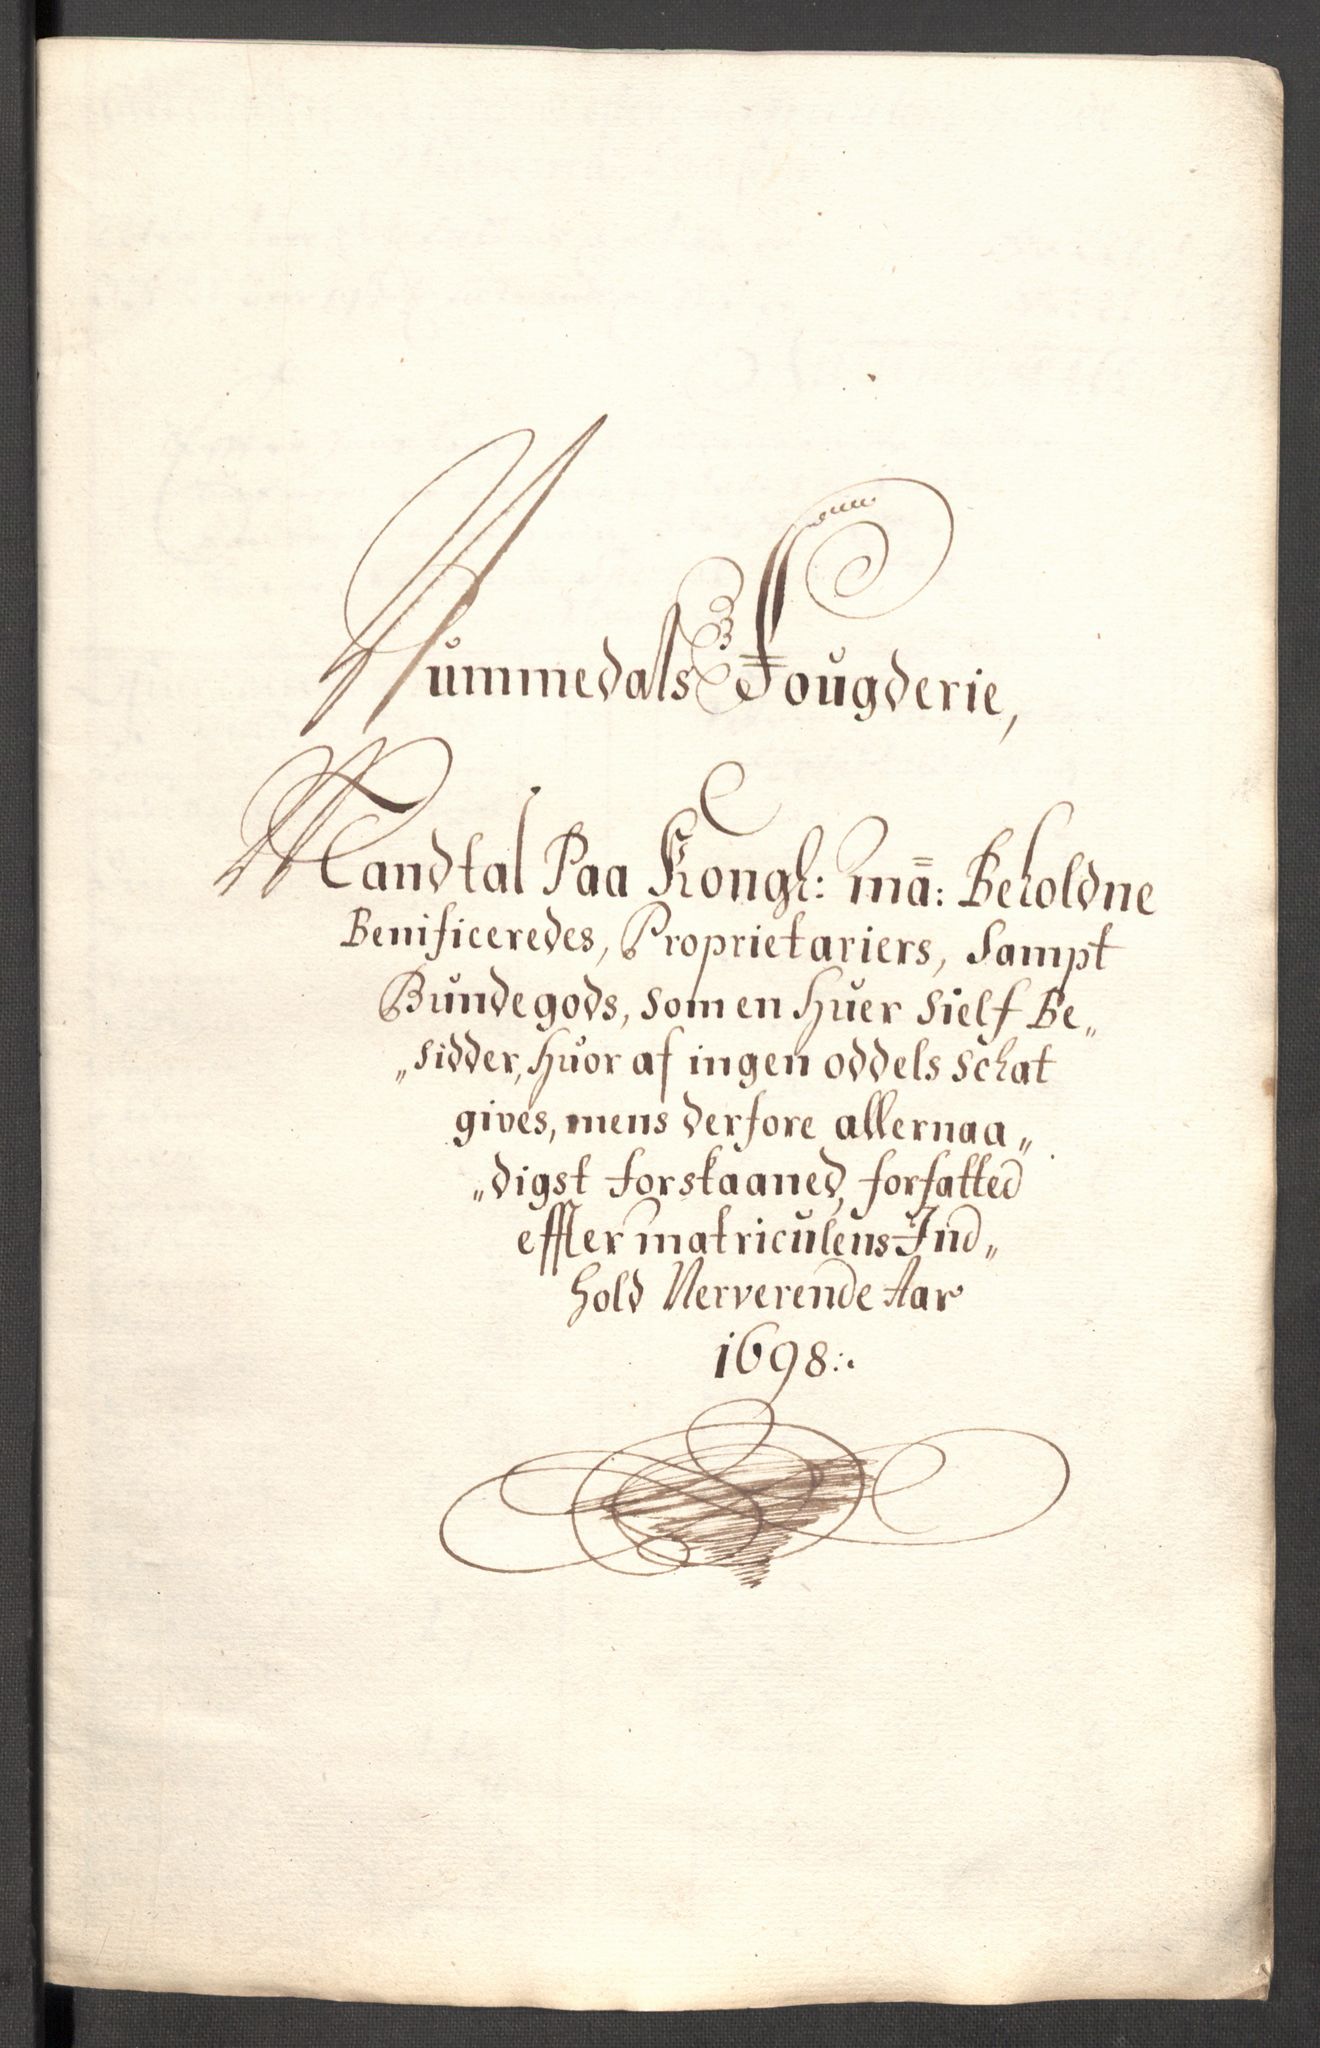 Nummedals Fougderie,
Mandtal Paa Kongl: mā: Beholdne
Benificeredes, Proprietariers, Sampt
Bundegods, som en huer sielf Be„
„sidder, huor af ingen oddels schat
gives, mens derfore allernaa„
„digst forskaaned, forfatted
effter matriculens Ind„
hold Nerverende Aar
1698:.